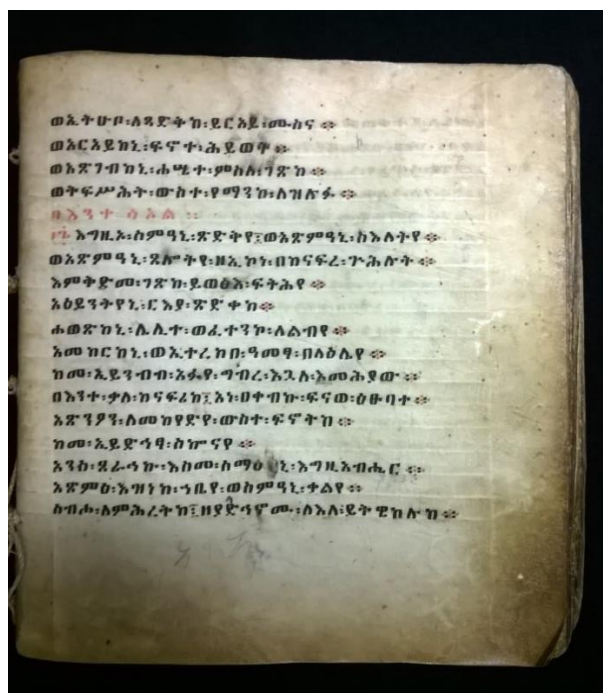 ወኢትሁቦ፡ለጻድቅከ፡ይርአይ፡ሙስና ።
ወአርአይከኒ፡ፍኖተ፡ሕይወት ።
ወአጽገብከኒ፡ሐሤተ፡ምስለ፡ገጽከ ።
ወትፍሥሕት፡ውስተ፡የማንከ፡ለዝሉፉ ።
በእንተ ሳኦል ።
እግዚኦ፡ስምዓኒ፡ጽድቅየ፤ወአጽምዓኒ፡ስእለትየ ።
ወአጽምዓኒ፡ጸሎትየ፡ዘኢኮነ፡በከናፍረ፡ጕሕሉት ።
እምቅድመ፡ገጽከ፡ይወፅእ፡ፍትሕየ ።
አዕይንትየኒ፡ርእያ፡ጽድቀከ ።
ሐወጽከኒ፡ሌሊተ፡ወፈተንኮ፡ለልብየ ።
አመከርከኒ፡ወኢተረክበ፡ዓመፃ፡በላዕሌየ ።
ከመ፡ኢይንብብ፡አፉየ፡ግብረ፡እጓለ፡እመሕያው ።
በእንተ፡ቃለ፡ከናፍሪከ፤አነ፡ዐቀብኩ፡ፍናወ፡ዕፁባተ ።
አጽንዖን፡ለመከየድየ፡ውስተ፡ፍኖትከ ።
ከመ፡ኢይድኅፃ፡ሰኰናየ ።
አንሰ፡ጸራኅኩ፡እስመ፡ሰማዕ ኒ፡እግዚአብሔር ።
አጽምዕ፡እዝነከ፡ኀቤየ፡ወስምዓኒ፡ቃልየ ።
ሰብሖ፡ለምሕረትከ፤ዘያድኅኖሙ፡ለእለ፡ይትዌከሉከ ።